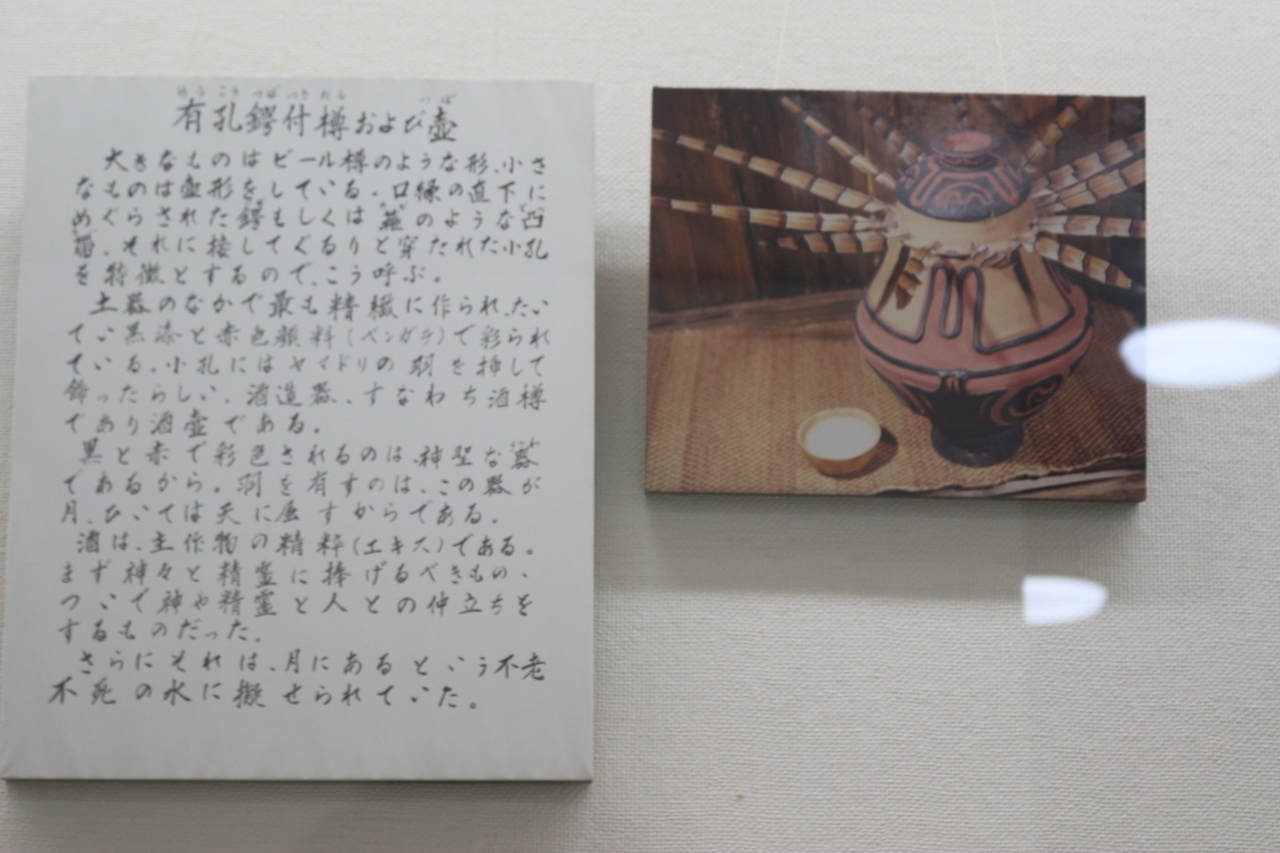 ゆうこうつばつきたる つぼ
有孔鍔付樽および壺
大きなものはビール樽のような形、小さ
なものは壺形をしている。口縁の直下に
めぐらされた鍔もしくは のような凸
帯、それに接してぐるりと穿たれた小孔
を特徴とするので、こう呼ぶ。
土器のなかで最も精緻に作られ、たい
てい黒漆と赤色顔料(ベンガラ)で彩られ
ている。小孔にはヤマドリの羽を挿して
飾ったらしい。酒造器、すなわち酒樽
であり酒壺である。
黒と赤で彩色されるのは、神聖な器
であるから。羽を有すのは、この器が
月、ひいては天に属すからである。
酒は、主作物の精粋(エキス)である。
まず神々と精霊に捧げるべきもの、
ついで神や精霊と人との仲立ちを
するものだった。
さらにそれは、月にあるという不老
不死の水に擬せられていた。